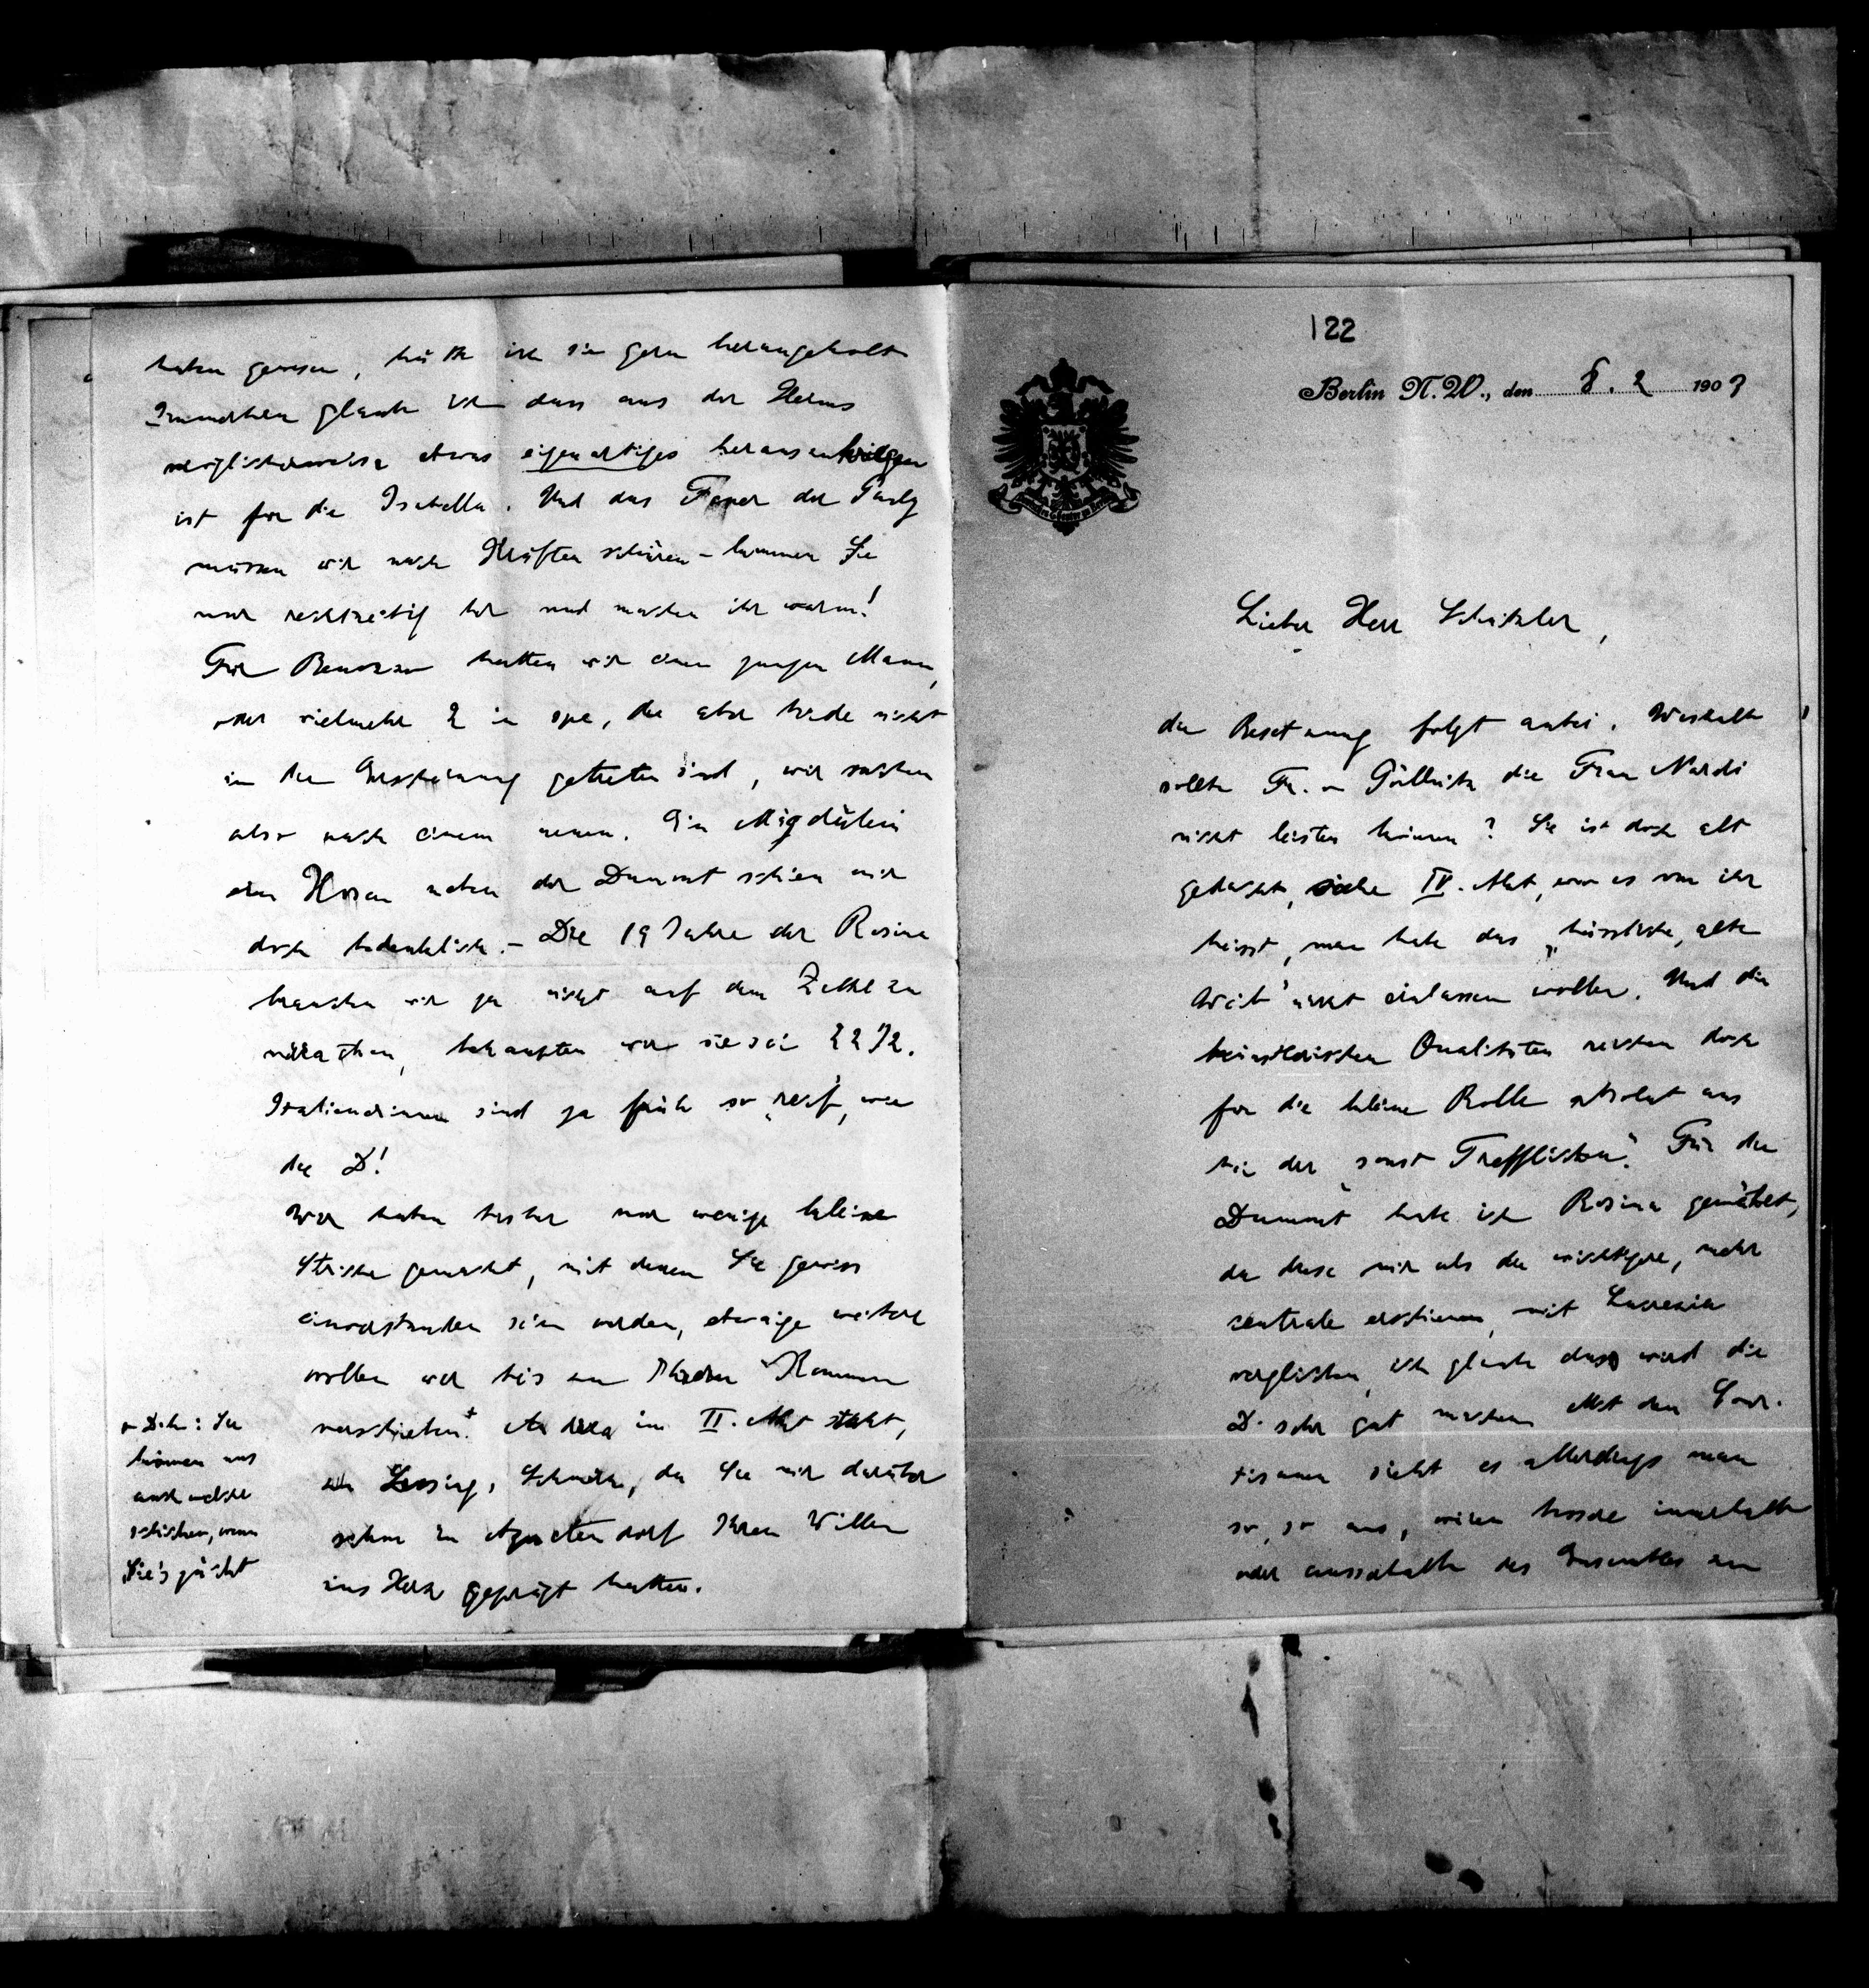 122
Berlin N.W., den 8. 2 1903
Lieber Herr Schnitzler,
die Besetzung folgt anbei. Weshalb
sollte Fr. v Pöllnitz die Frau Nardi
nicht leisten können? Sie ist doch alt
gedacht, siehe IV. Akt, wo es von ihr
heisst, man habe das „hässliche, alte
Weib" nicht einlassen wollen. Und die
künstlerischen Qualitäten reichen doch
für die kleine Rolle absolut aus
bei der „sonst Trefflichen". Für die
Dumont habe ich Rosina gewählt,
da diese mir als die wichtigere, mehr
centrale erschienen, mit Lucrezia
verglichen, ich glaube dass wird die
D. sehr gut machen. Mit den Cour-
tisanen sieht es allerdings man
so, so aus, wären beide innerhalb
oder ausserhalb des Ensembles zu
haben gewesen, hätte ich sie gern herangeholt
Immerhin glaube ich dass aus der Helms
möglicherweise etwas eigenartiges herauszukriegen
ist für die Isabella. Und das Feuer der Pauly
müssen wir nach Kräften schüren – kommen Sie
nur rechtzeitig her und machen ihr warm!
Für hatten wir einen jungen Mann,
oder vielmehr 2 in spe, die aber beide nicht
in die Erscheinung getreten sind, wir suchen
also nach einem neuen. Ein Mägdulein
in Hosen neben der Dumont schien mir
doch bedenklich. – Die 19 Jahre der Rosina
brauchen wir ja nicht auf dem Zettel zu
vermerken, behaupten wir sie sei 22 1/2.
Italienerinnen sind ja früh so „reif", wie
die D!
Wir haben bisher nur wenige kleine
Striche gemacht, mit denen Sie gewiss
einverstanden sein werden, etwaige weitere
wollen wir bis zu Ihrem Kommen
verschieben.+ Andrea im II. Akt steht,
ein Lessing, Schmerz, da Sie mir darüber
schon in Agnetendorf Ihren Willen
ins Herz geprägt hatten.
+ D.h.: Sie
können uns
auch welche
schicken, wenn
Sie's juckt